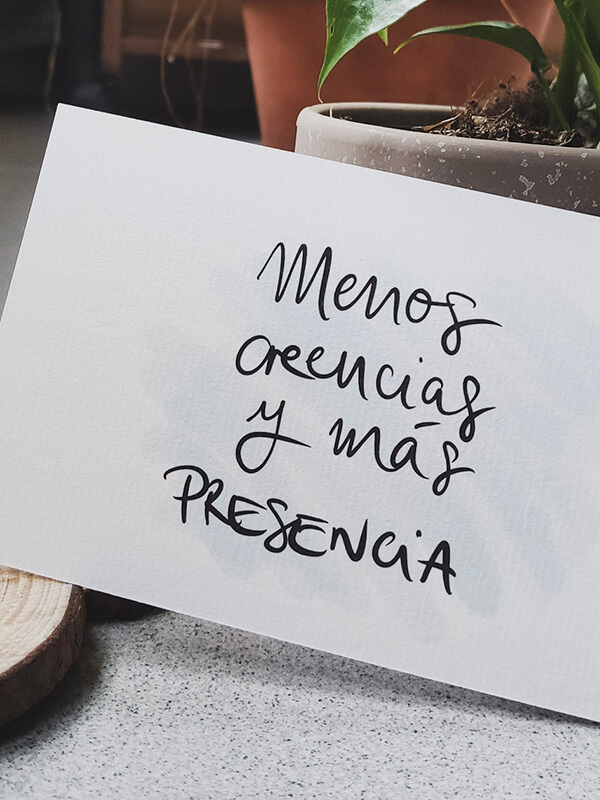 Menos
creencias
y más
PRESENCiA